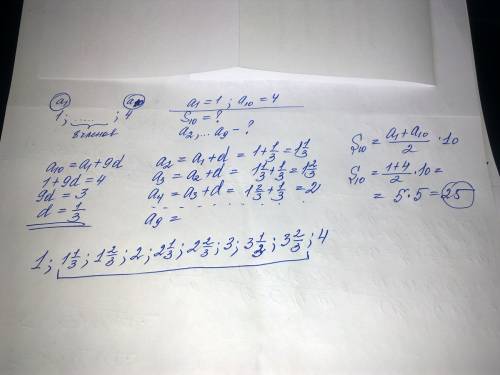 a₁ a₁₀
1; ....... ; 4
8 членов
a₁ = 1 ; a₁₀ = 4
S₁₀ = ?
a₂, ... a₉ - ?
a₁₀ = a₁ + 9d
1 + 9d = 4
9d = 3
d = 1/3
a₂ = a₁ + d = 1 + 1/3 = 1 1/3
a₃ = a₂ + d = 1 1/3 + 1/3 = 1 2/3
a₄ = a₃ + d = 1 2/3 + 1/3 = 2
a₉ =
S₁₀ = (a₁ + a₁₀)/2 · 10
S₁₀ = (1 + 4)/2 · 10 =
= 5 · 5 = 25
1; 1 1/3; 1 2/3; 2; 2 1/3; 2 2/3; 3; 3 1/3; 3 2/3; 4